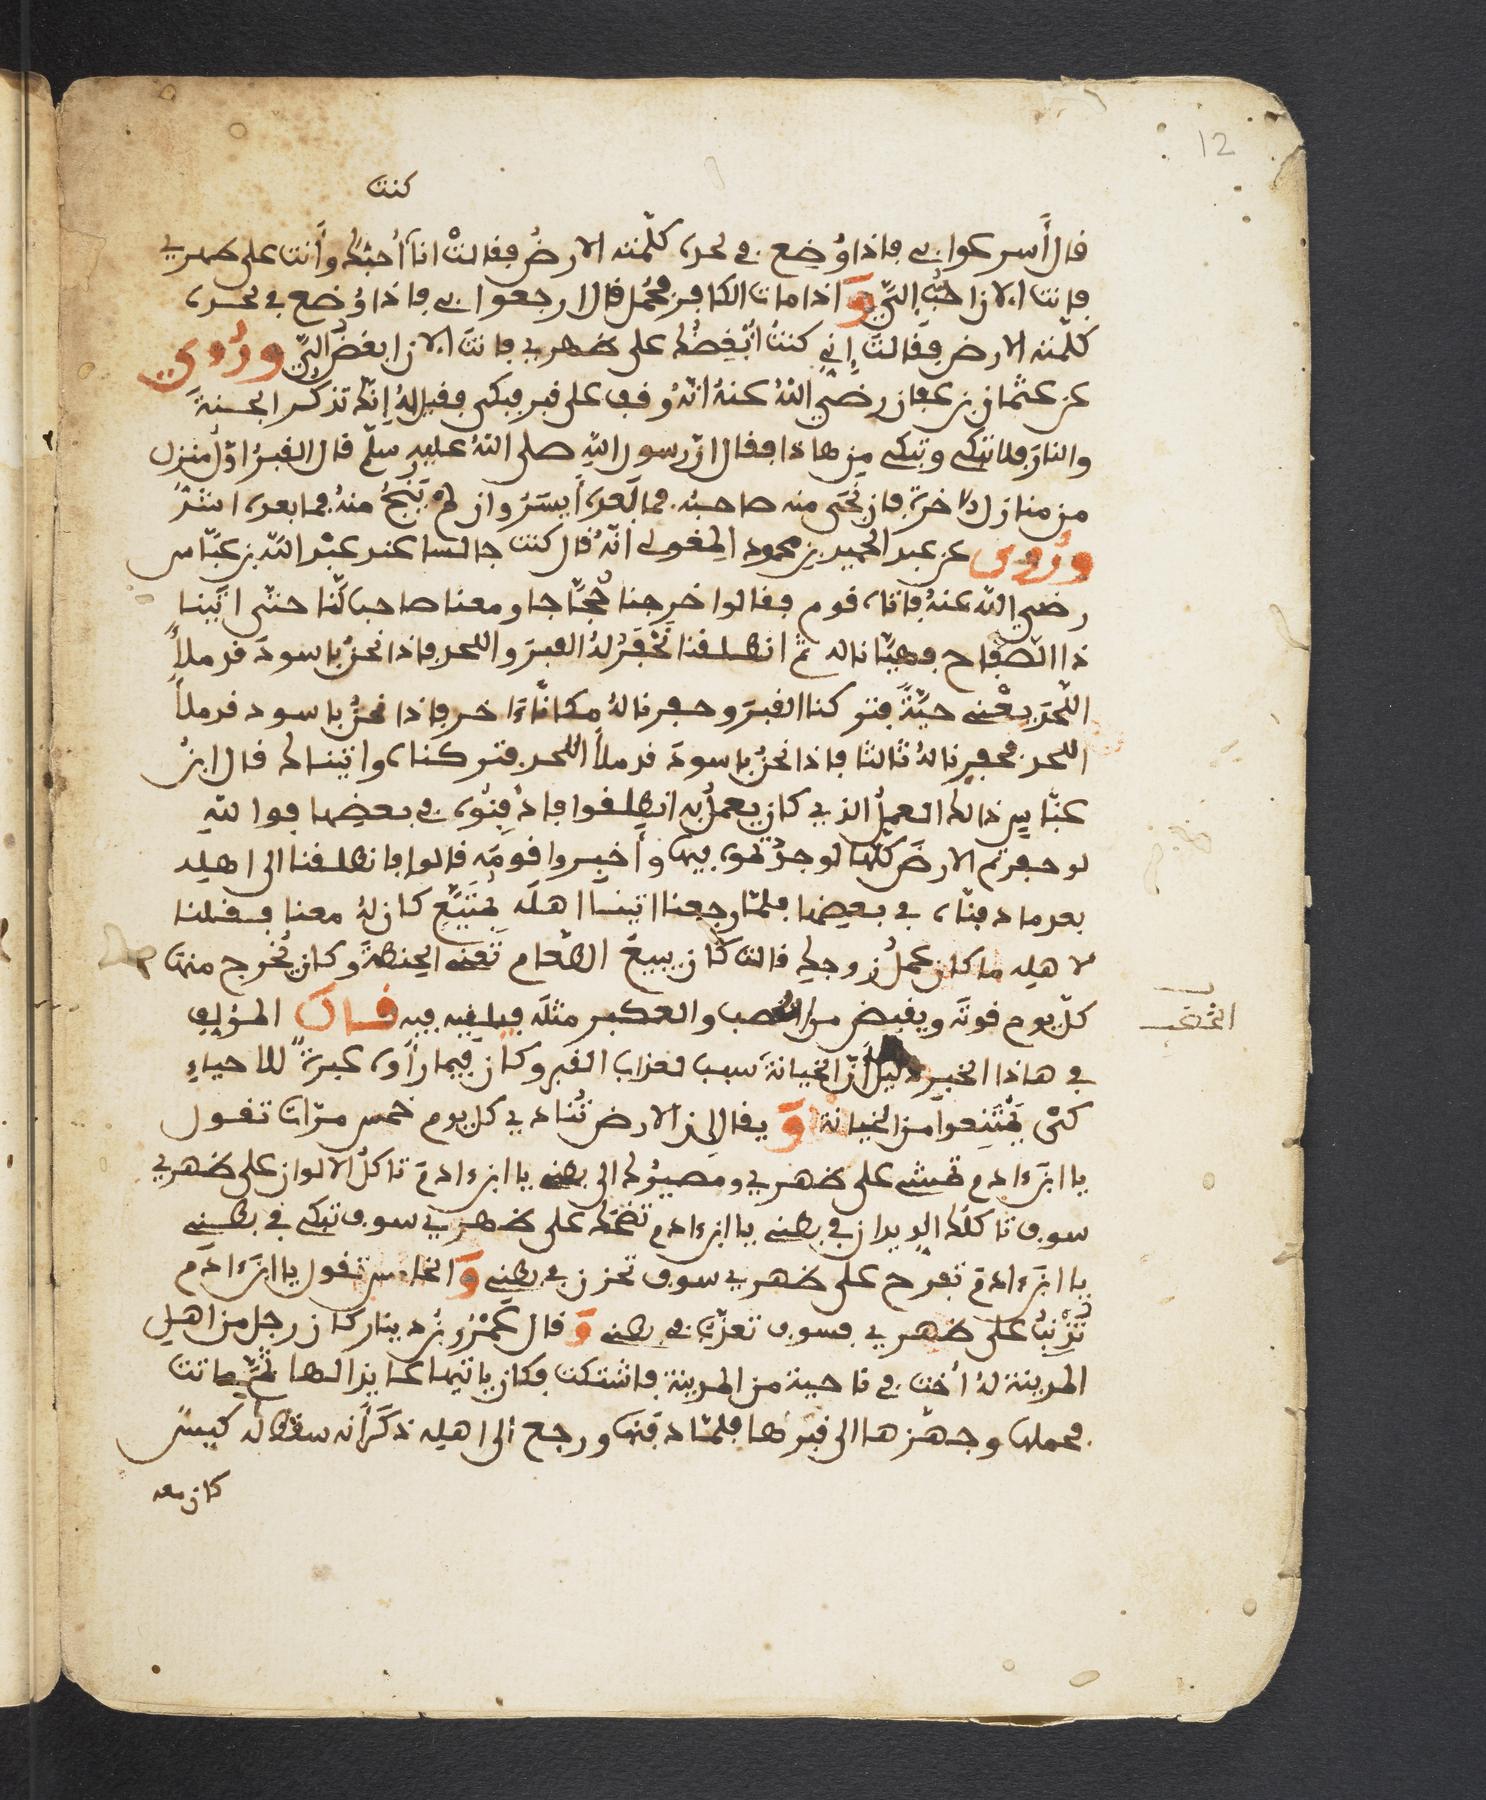 12
كنت
قال أسرعوا بي فإذا وُضع في لحده كلّمته الارضُ فقالتْ انا أُحبُّك وأَنت على ظهري
فانت الان احبُّ إليَّ وَاذا مات الكافر فحُمل قال ارجعوا بي فاذا وُضع في لحده
كلّمته الارض فقالت إنِّي كنتُ أُبْغِضُك على ظهري فانتَ الان ابغضُ اليَّ ورُوي
عن عثمان بن عفان رضي اللهُ عنهُ انّهُ وقف على قبر فبكى فقيل لهُ إنّك تذكر الجنةَ
والنارَ فلا تبكي وتبكي من هاذا فقال انّ رسول اللهِ صلى اللهُ عليه وسلّم قال القبرُ اوّل منزل
من منازل الاخرة فان نَجَى منه صاحبُه فما بَعدَه أَيسَرُ وان لم يَنْجُ منهُ فما بعده اشدُّ
ورُوي عن عبد الحميد بن محمود المغولي انّهُ قال كنت جالسا عند عبْد اللّه بن عبّاس
رضي اللّه عنهُ فاتاه قوم فقالوا خرجنا حُجّاجا ومعنا صاحب لّنا حتّى اتَيْنا
ذا الصّفاح فهيّاناله ثمّ انطلقنا نَحْفِرُ لهُ القبرَ واللحد فاذا نحنُ باسودَ قد ملأَ
اللّحدَ يعْني حيّةً فتركنا القبرَ وحفرنا لهُ مكانًا ءَاخر فاذا نحنُ باسود قد ملأ
اللحد فحفرنا لهُ ثالثا فاذا نحنُ باسودَ قد ملأَ اللحد فتركناه واتيناك قال ابنُ
عبّاسٍ ذالك العملُ الذي كان يعملُ به انطلِقوا فادْفِنُوه في بعضِها فوالله
لو حفرتم الارضَ كلّها لوجدْتموه فيها وأَخبِروا قومَه قالوا فانطلقنا الى اهله
بعدما دفنّاه في بعضِها فلمّا رجعنا اتينَا اهلَه بمَتَيِّعٍ كان لهُ معنا فقلنا
لاهله ما كان عملُ زوجك قالت كان يبيعُ الطّعام تعْني الحِنطةَ وكان يُخْرِج منها
كلّ يوم قوتَه ويقبض من القصب والعكبر مثلَه فيلقيه فيه قال المؤلف
القصب
في هاذا الخبر دليل انّ الخيانةَ سبب لعذاب القبر وكان فيما رأَوه عبرةً للاحياءِ
كىْ يمْتَنِعوا من الخيانة وَيقال إن الارض تُنادي كل يوم خمس مرّات تقول
يا ابن ءَادم تمشي على ظهري ومصيرُك الى بطني يا ابن ءادمَ تاكلُ الالوان على ظهري
سوف تاكلُك الديدان في بطني يا ابن ءادم تضحك على ظهري سوف تبكي في بطني
يا ابن ءَادمَ تفرح على ظهري سوف تحزن في بطني وَالخامس تقول يا ابن ءَادَم
تُذْنِبُ على ظهري فسوف تعذّب في بطني وَقال عَمْرُو بْنُ دينار كان رجل من اهل
المدينة لهُ أُخت في ناحية من المدينة فاشتكت فكان ياتيها عايدا لها ثمّ ماتت
فحملها وجهّزها الى قبرها فلمّا دفنها ورجع الى اهله ذكر أَنه سقط له كيسٌ
كان معه